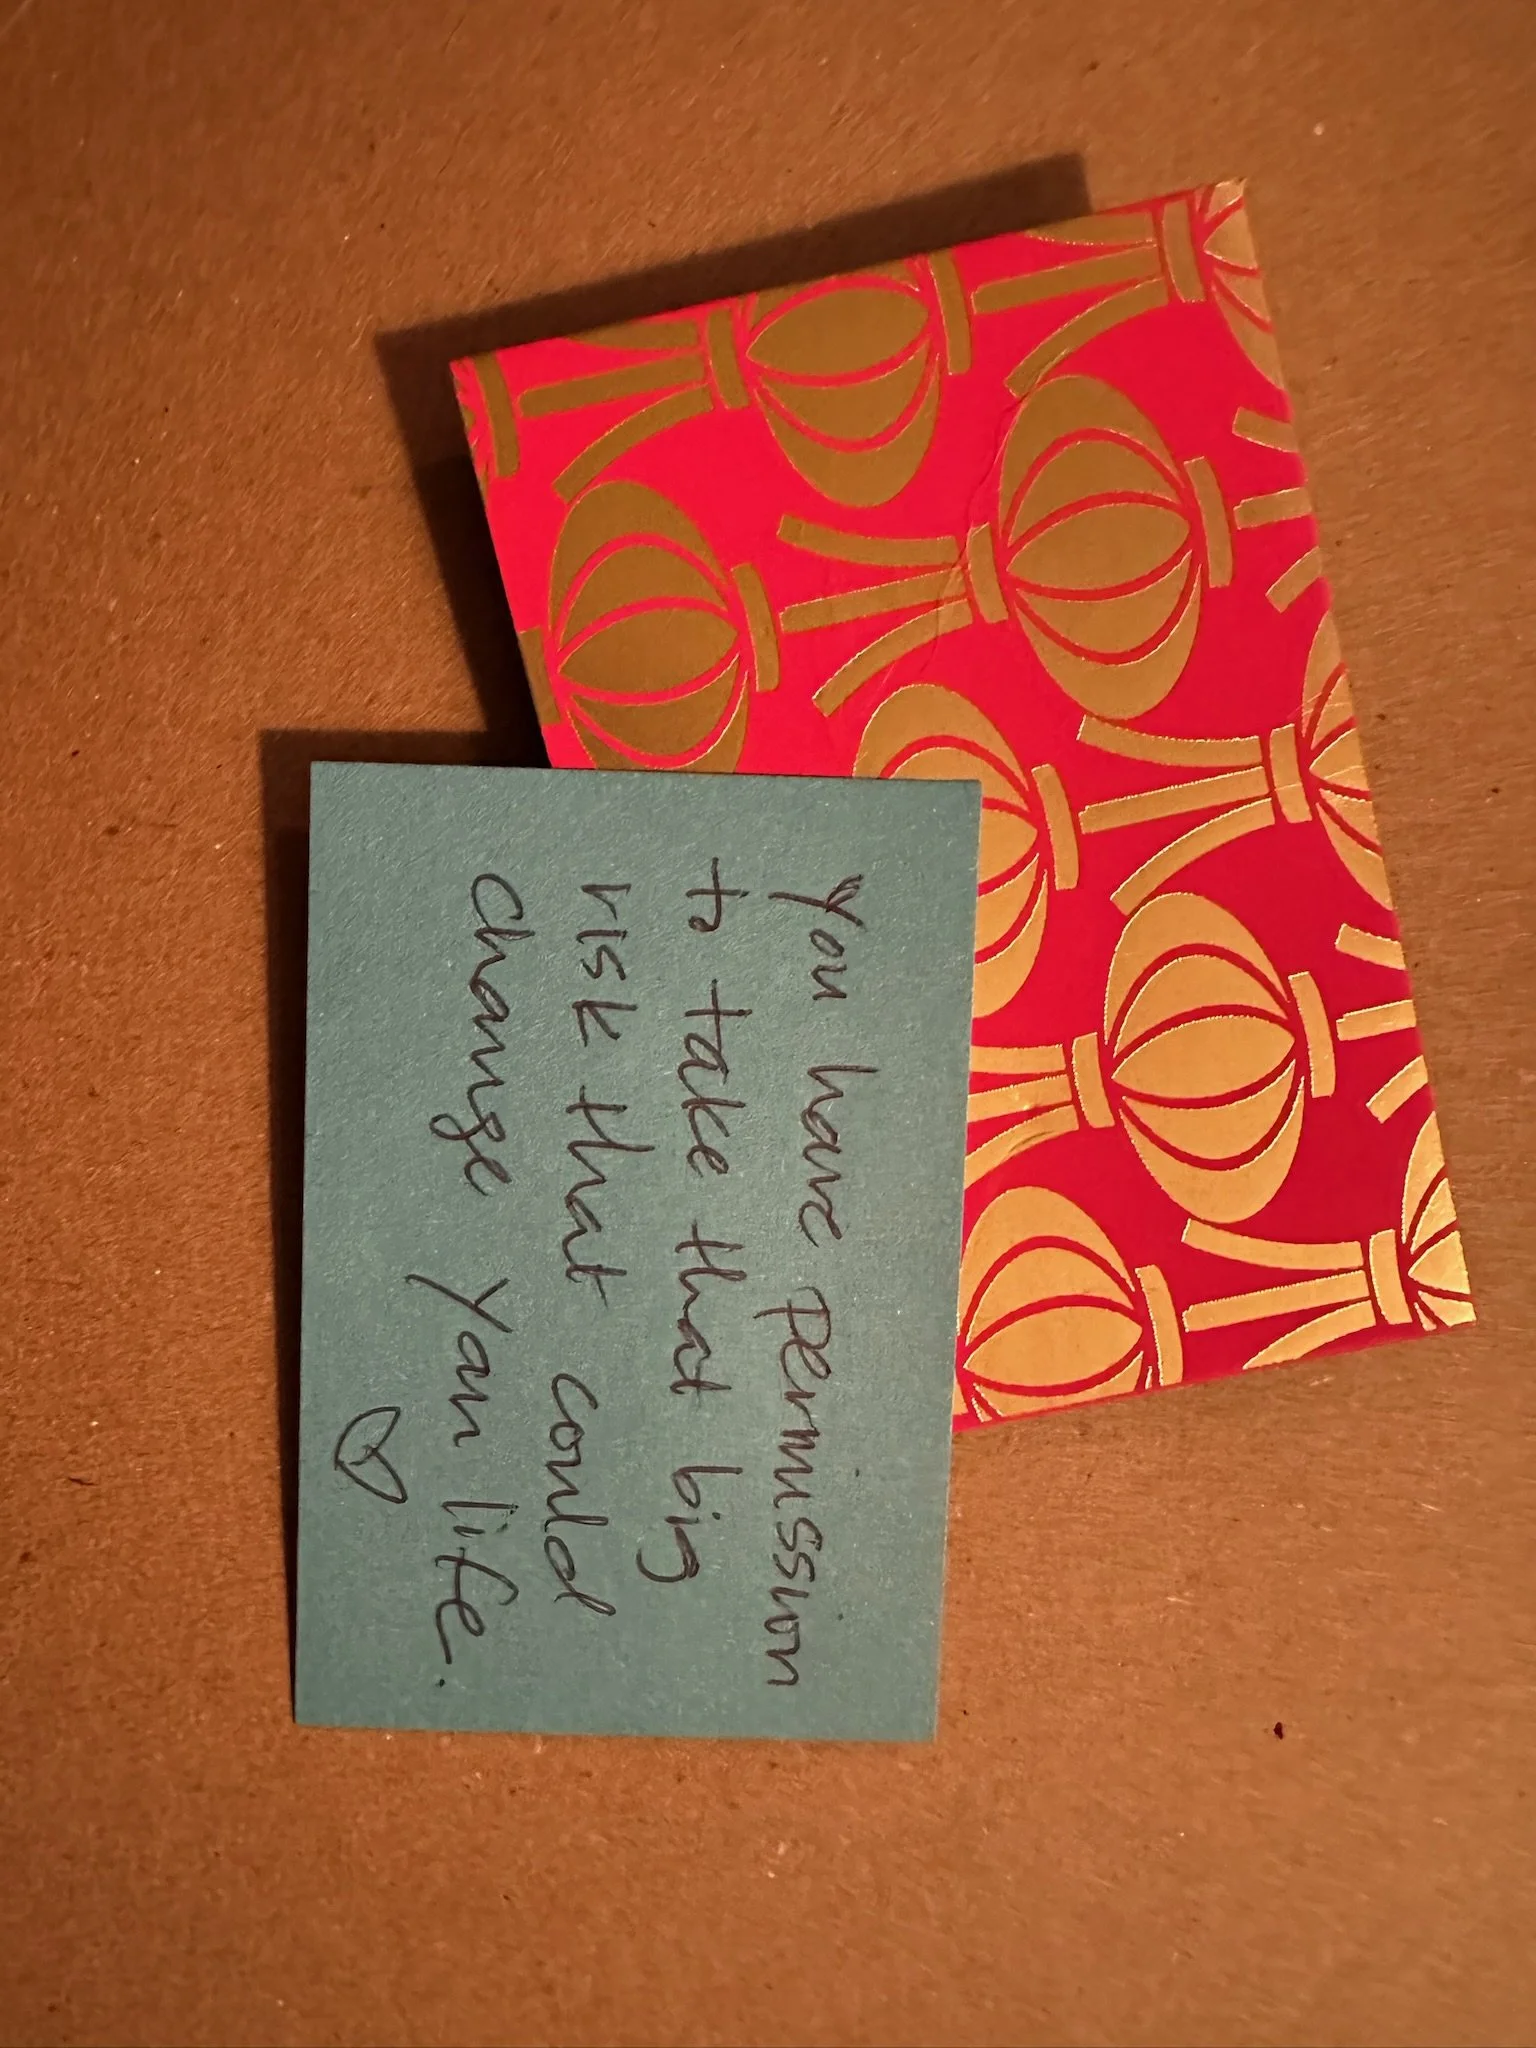 You have permission
to take that big
risk that could
change your life.